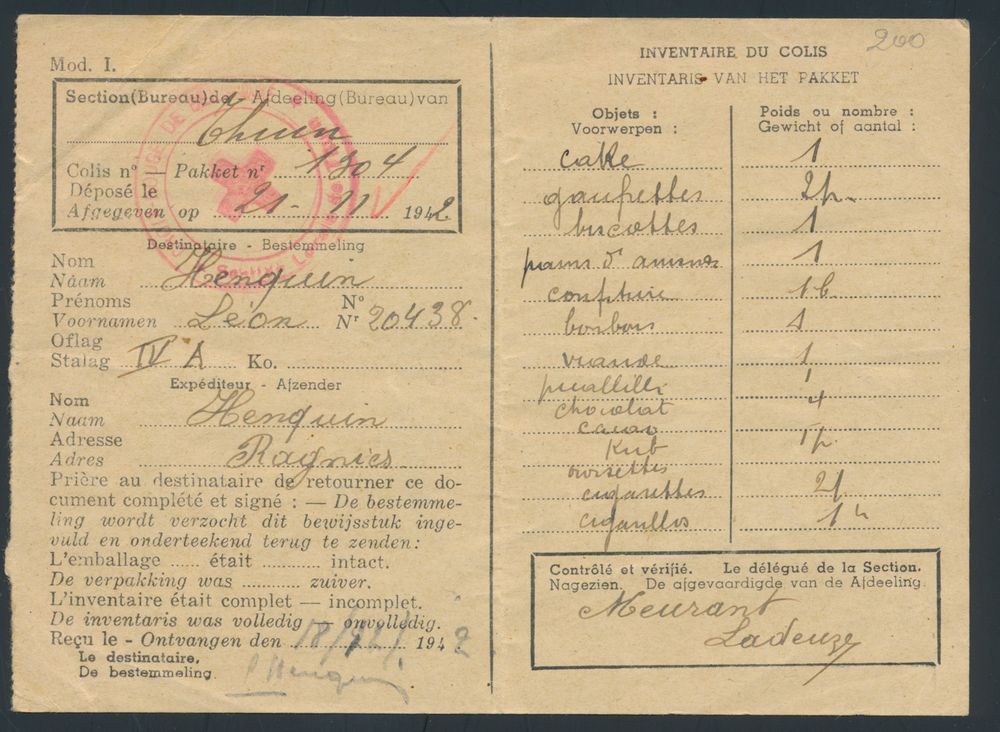 Mod. I.
Section(Bureau)de - Afdeeling(Bureau)van
Thuin
Colis nº — Pakket nr 1304
Déposé le
Afgegeven op 21 - 11 1942
Destinataire - Bestemmeling
Nom
Naam Henquin
Prénoms Nº
Voornamen Léon Nr 20438
Oflag
Stalag IV A Ko.
Expéditeur - Afzender
Nom
Naam Henquin
Adresse
Adres Ragnies
Prière au destinataire de retourner ce do-
cument complété et signé : — De bestemme-
ling wordt verzocht dit bewijsstuk inge-
vuld en onderteekend terug te zenden:
L'emballage ...... était .......... intact.
De verpakking was .......... zuiver.
L'inventaire était complet — incomplet.
De inventaris was volledig — onvolledig.
Reçu le - Ontvangen den 18/12/ 1942
Le destinataire,
De bestemmeling
Henquin
200
INVENTAIRE DU COLIS
INVENTARIS VAN HET PAKKET
Objets : Poids ou nombre :
Voorwerpen : Gewicht of aantal :
cake 1
gaufrettes 2p.
biscottes 1
pains d' 1
confiture 1b
bonbons
viande 1
picallilli 1
chocolat 4
cacao
Kub 1p.
noisettes
cigarettes
cigarillos
Contrôlé et vérifié. Le délégué de la Section.
Nagezien. De afgevaardigde van de Afdeeling.
Meurant
Ladeuze